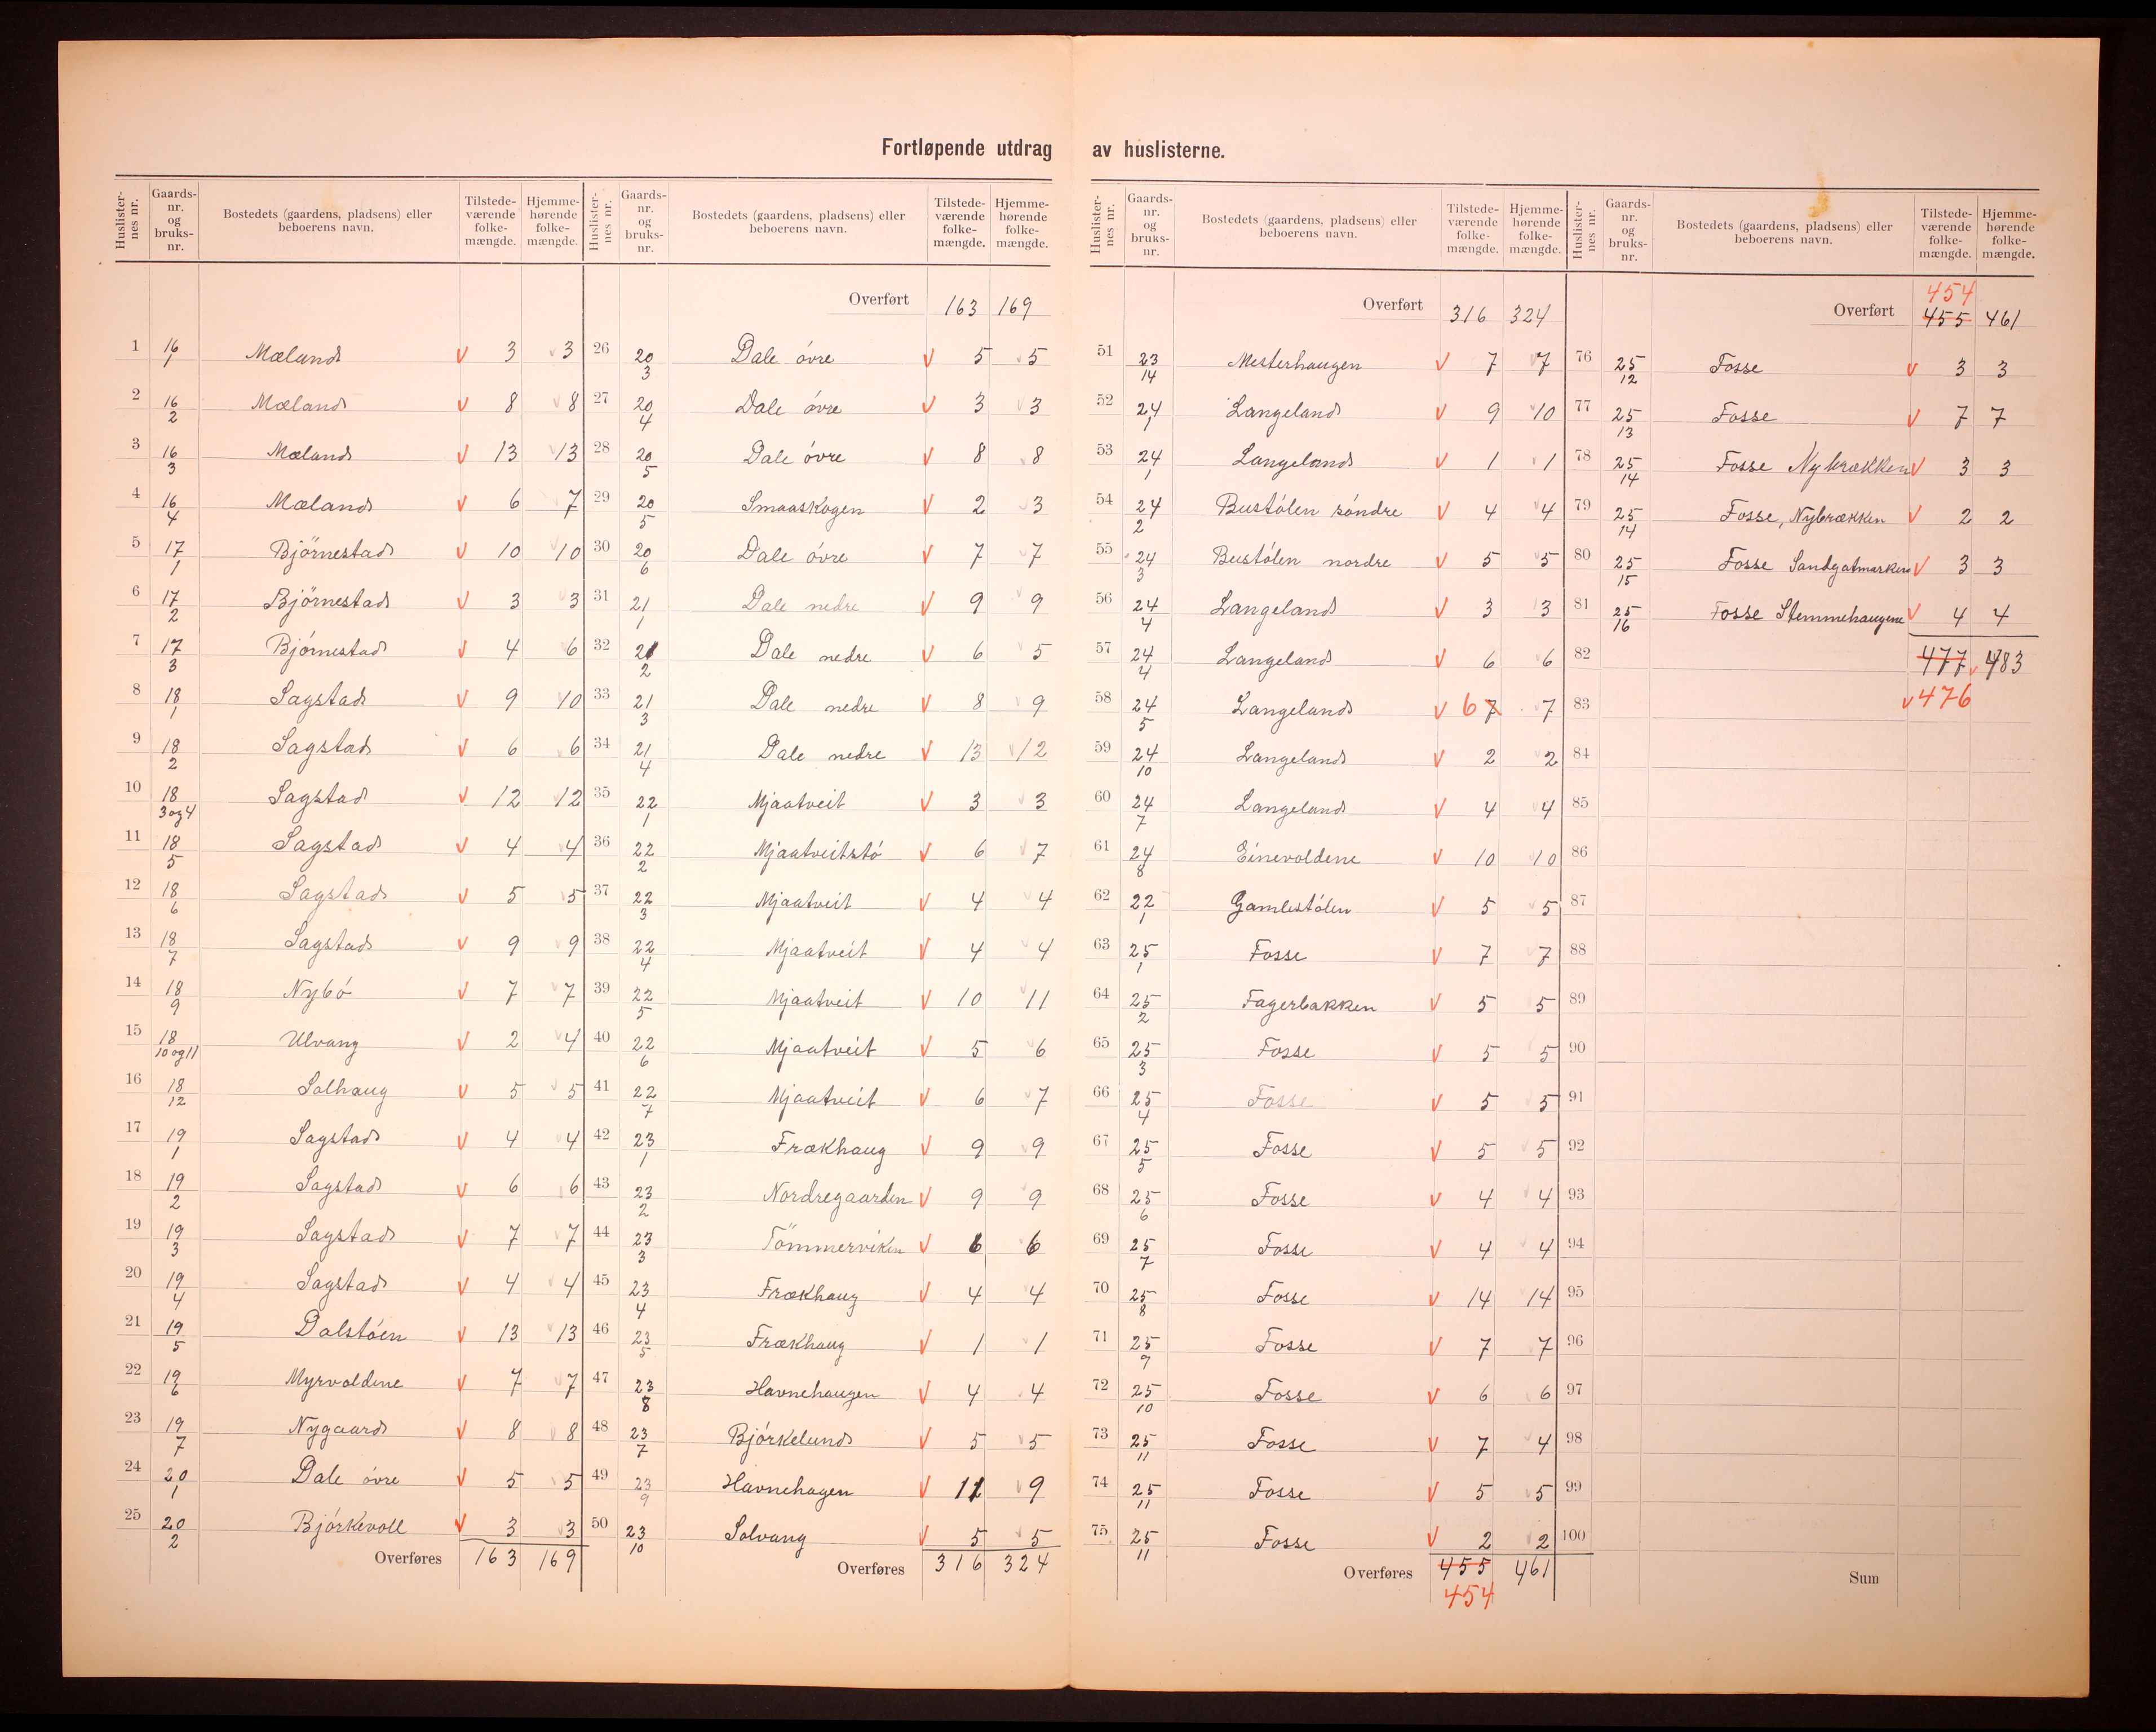 Fortløpende utdrag av huslisterne.
Huslister-nes nr. Gaards-nr. og bruks-nr. Bostedets (gaardens, pladsens) eller beboerens navn. Tilstede-værende folke-mængde. Hjemme-hørende folke-mængde.
1 16/1 Mæland v 3 v 3
2 16/2 Mæland v 8 v 8
3 16/3 Mæland v 13 v 13
4 16/4 Mæland v 6 7
5 17/1 Björnestad v 10 v 10
6 17/2 Björnestad v 3 v 3
7 17/3 Björnestad v 4 v 6
8 18/1 Sagstad v 9 v 10
9 18/2 Sagstad v 6 v 6
10 18/3 og 4 Sagstad v 12 v 12
11 18/5 Sagstad v 4 v 4
12 18/6 Sagstad v 5 v 5
13 18/7 Sagstad v 9 v 9
14 18/9 Nybó v 7 v 7
15 18/10 og 11 Ulvang v 2 v 4
16 18/12 Solhaug v 5 v 5
17 19/1 Sagstad v 4 v 4
18 19/2 Sagstad v 6 v 6
19 19/3 Sagstad v 7 v 7
20 19/4 Sagstad v 4 v 4
21 19/5 Dalstóen v 13 v 13
22 19/6 Myrvoldene v 7 v 7
23 19/7 Nygaard v 8 v 8
24 20/1 Dale óvre v 5 v 5
25 20/2 Björkevoll v 3 v 3
Overføres 163 169
Huslister-nes nr. Gaards-nr. og bruks-nr. Bostedets (gaardens, pladsens) eller beboerens navn. Tilstede-værende folke-mængde. Hjemme-hørende folke-mængde.
Overført 163 169
26 20/3 Dale óvre v 5 v 5
27 20/4 Dale óvre v 3 v 3
28 20/5 Dale óvre v 8 v 8
29 20/5 Smaaskogen v 2 v 3
30 20/6 Dale óvre v 7 v 7
31 21/1 Dale nedre v 9 v 9
32 21/2 Dale nedre v 6 v 5
33 21/3 Dale nedre v 8 v 9
34 21/4 Dale nedre v 13 v 12
35 22/1 Mjaatveit v 3 v 3
36 22/2 Mjaatveitstó v 6 v 7
37 22/3 Mjaatveit v 4 v 4
38 22/4 Mjaatveit v 4 v 4
39 22/5 Mjaatveit v 10 v 11
40 22/6 Mjaatveit v 5 v 6
41 22/7 Mjaatveit v 6 v 7
42 23/1 Frækhaug v 9 v 9
43 23/2 Nordregaarden v 9 v 9
44 23/3 Tömmerviken v 6 v 6
45 23/4 Frækhaug v 4 v 4
46 23/5 Frækhaug v 1 v 1
47 23/8 Havnehaugen v 4 v 4
48 23/7 Bjórkelund v 5 v 5
49 23/9 Havnehagen v 11 v 9
50 23/10 Solvang v 5 v 5
Overføres 316 324
Huslister-nes nr. Gaards-nr. og bruks-nr. Bostedets (gaardens, pladsens) eller beboerens navn. Tilstede-værende folke-mængde. Hjemme-hørende folke-mængde.
Overført 316 324
51 23/14 Mesterhaugen v 7 v 7
52 24/1 Langeland v 9 v 10
53 24/1 Langeland v 1 v 1
54 24/2 Bustólen sóndre v 4 v 4
55 24/3 Bustólen nordre v 5 v 5
56 24/4 Langeland v 3 v 3
57 24/4 Langeland v 6 v 6
58 24/5 Langeland v 6 7 v 7
59 24/10 Langeland v 2 v 2
60 24/7 Langeland v 4 v 4
61 24/8 Einevoldene v 10 v 10
62 22/1 Gamlestólen v 5 v 5
63 25/1 Fosse v 7 v 7
64 25/2 Fagerbakken v 5 v 5
65 25/3 Fosse v 5 v 5
66 25/4 Fosse v 5 v 5
67 25/5 Fosse v 5 v 5
68 25/6 Fosse v 4 v 4
69 25/7 Fosse v 4 v 4
70 25/8 Fosse v 14 v 14
71 25/9 Fosse v 7 v 7
72 25/10 Fosse v 6 v 6
73 25/11 Fosse v 7 v 4
74 25/11 Fosse v 5 v 5
75 25/11 Fosse v 2 v 2
Overføres 455 461
454
Huslister-nes nr. Gaards-nr. og bruks-nr. Bostedets (gaardens, pladsens) eller beboerens navn. Tilstede-værende folke-mængde. Hjemme-hørende folke-mængde.
454
Overført 455 461
76 25/12 Fosse v 3 3
77 25/13 Fosse v 7 7
78 25/14 Fosse Nybrækken v 3 3
79 25/14 Fosse, Nybrækken v 2 2
80 25/15 Fosse Sandgatmarken v 3 3
81 25/16 Fosse Stemmehaugene v 4 4
82 477 v 483
83 v 476
84
85
86
87
88
89
90
91
92
93
94
95
96
97
98
99
100
Sum